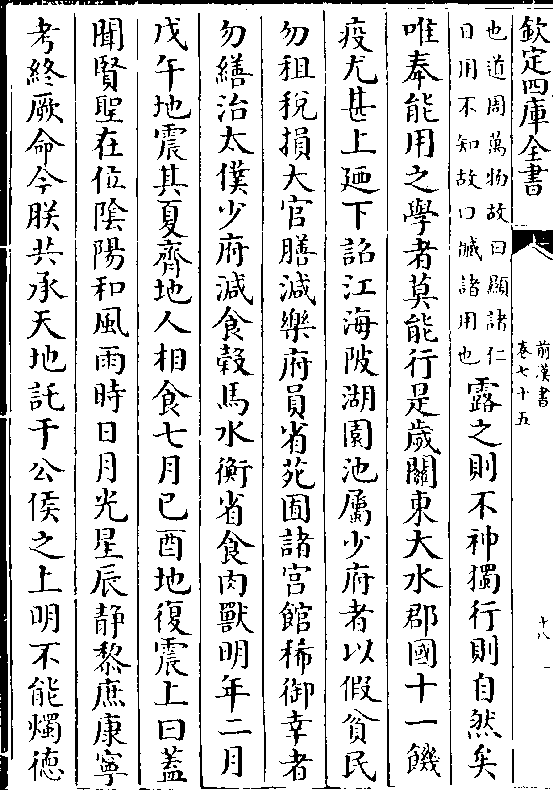 欽定四庫全書
前漢書
卷七十五
十八
也道周萬物故曰顯諸仁
日用不知故曰臧諸用也
露之則不神獨行則自然矣
唯奉能用之學者莫能行是歲關東大水郡國十一饑
疫尤甚上廼下詔江海陂湖園池屬少府者以假貧民
勿租稅損大官膳減樂府員省苑囿諸宫館稀御幸者
勿繕治太僕少府減食榖馬水衡省食肉獸明年二月
戊午地震其夏齊地人相食七月己酉地復震上曰蓋
聞賢聖在位陰陽和風雨時日月光星辰静黎庶康寧
考終厥命今朕共承天地託于公侯之上明不能燭德